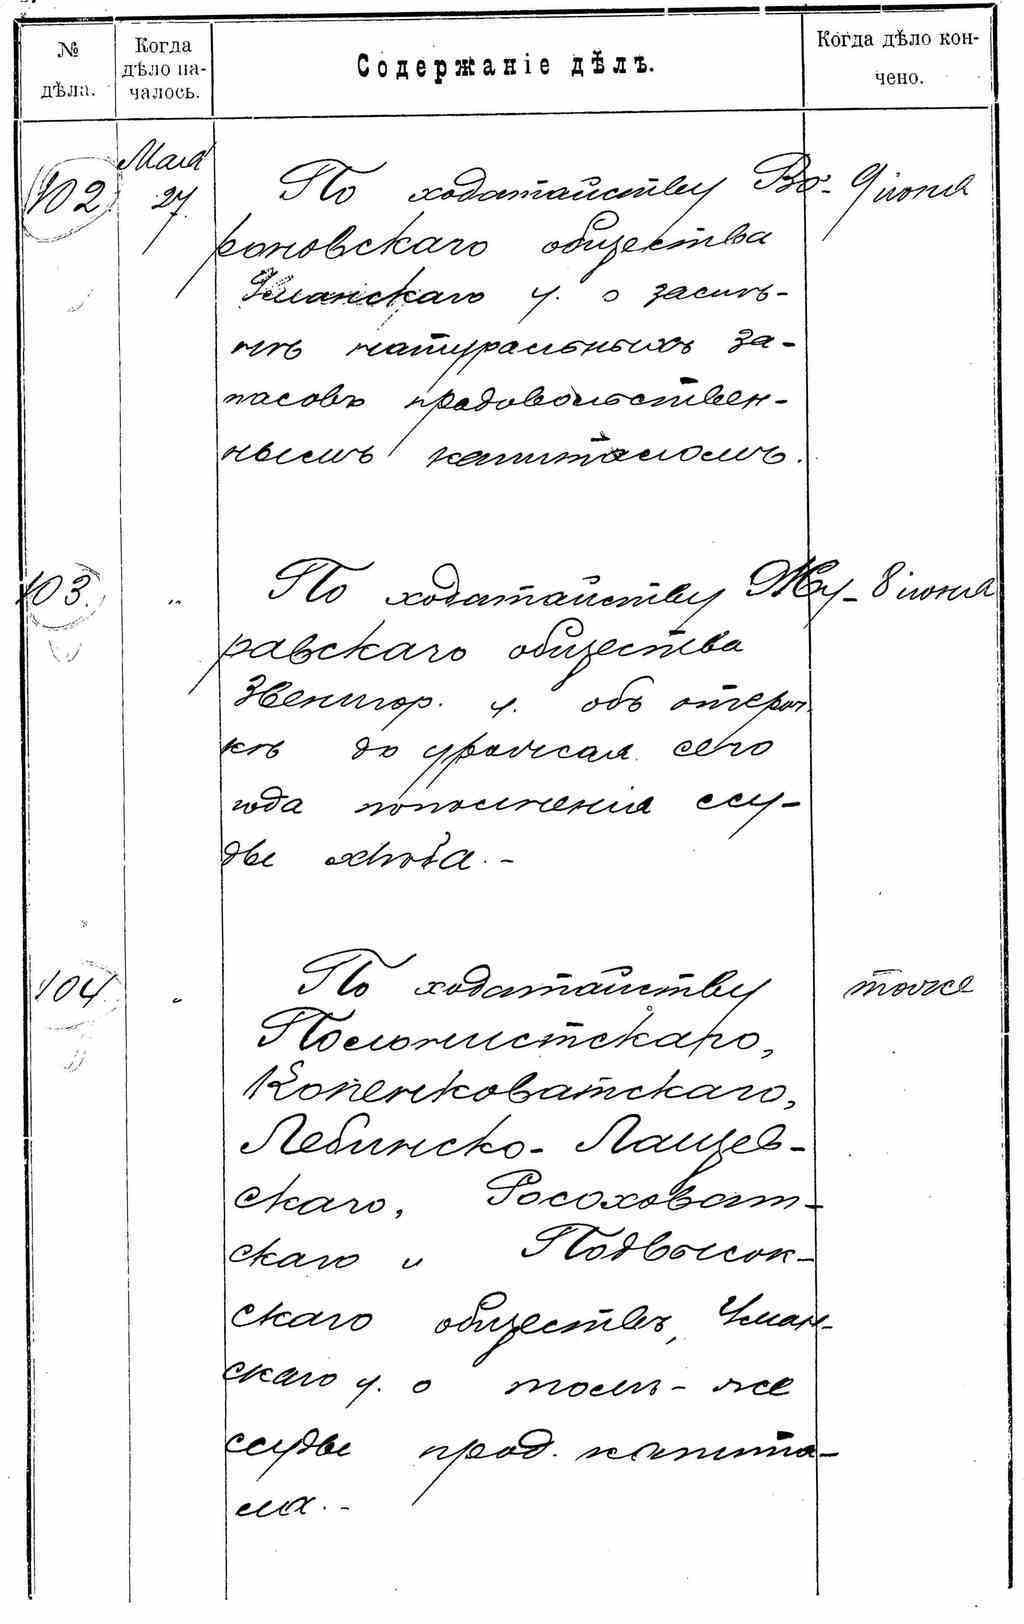 № дѣла.
Когда дѣло на-
чалось.
Содержаніе дѣлъ.
Когда дѣло кон-
чено.
102
Мая 27
По ходатайству Во-
9 іюня
роновскаго общества
Уманскаго у. о
натуральныхъ за-
пасовъ продовольствен-
нымъ капиталомъ.
103.
"
По ходатайству Жу-
8 іюня
равскаго общества
Звенигор. у. объ отсроч-
кѣ до урожая сего
года пополненія ссу-
ды хлѣба. -
104
"
По ходатайству
тоже
Полонистскаго,
Копенковатскаго,
Лебинско-Лащев-
скаго, Росоховат-
скаго и Подвысок-
скаго обществъ, Уман-
скаго у. о томъ-же
ссуды прод. капита-
ла. -